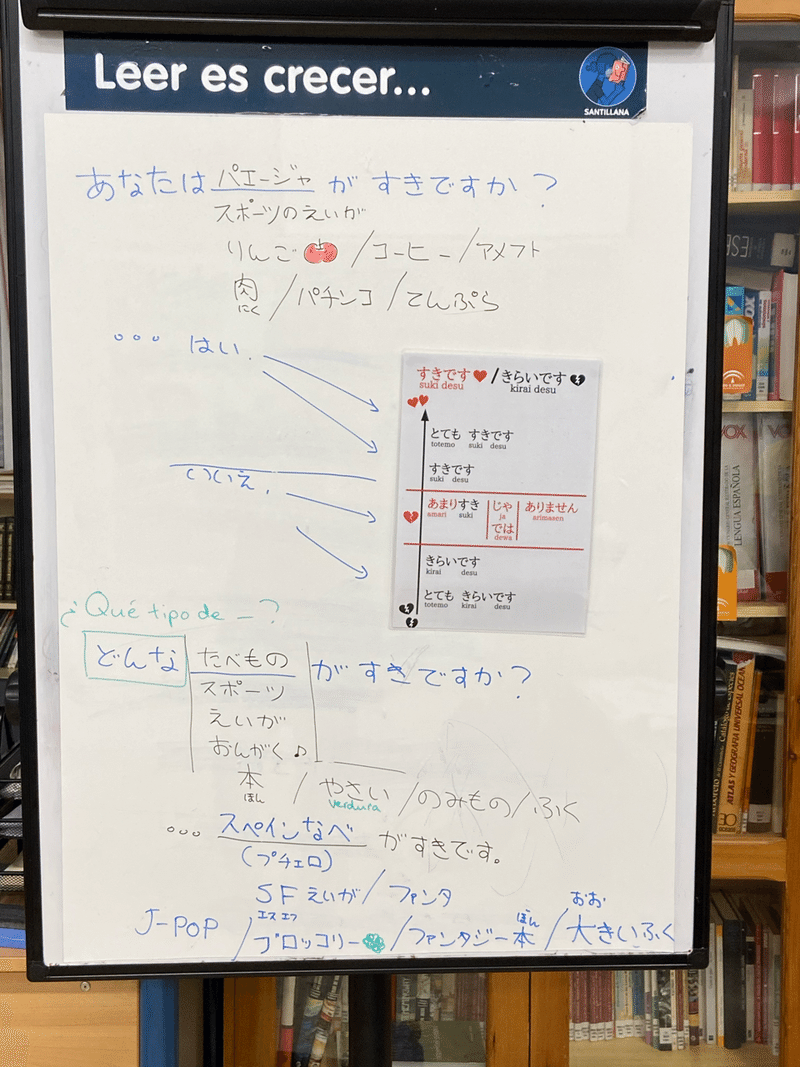 Leer es crecer...
SANTILLANA
あなたは パエージャ が すきですか？
スポーツのえいが
りんご / コーヒー / アメフト
肉 / パチンコ / てんぷら
にく
。。。 はい.
すきです / きらいです
suki desu kirai desu
とても すきです
totemo suki desu
すきです
suki desu
いいえ.
あまりすき じゃ ありません
amari suki ja arimasen
では
dewa
きらいです
kirai desu
とても きらいです
totemo kirai desu
¿Qué tipo de — ?
どんな たべもの が すきですか？
スポーツ
えいが
おんがく ♪
本 / やさい / のみもの / ふく
ほん verdura
。。。 スペインなべ がすきです。
(プチェロ)
SFえいが / ファンタ
エスエフ ぼん おお
J-POP / ブロッコリー / ファンタジー本 / 大きいふく
VOX
LENGUA ESPAÑOLA
ATLAS Y GEOGRAFIA UNIVERSAL OCEANO